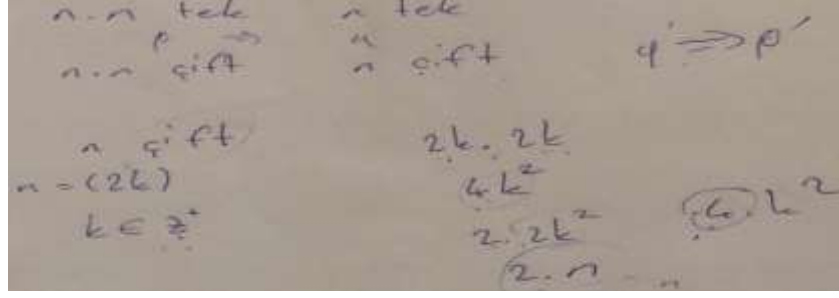 n.n tek n tek
p ⇒ q
n.n çift n çift q' ⇒ p'
n çift 2k.2k
n = (2k) 4.k²
k ∈ z⁺ 2.2k² 4.k²
2.n